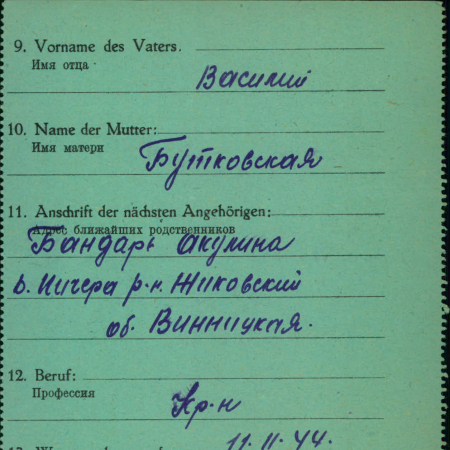 9. Vorname des Vaters.
Имя отца
Василий
10. Name der Mutter:
Имя матери
Бутковская
11. Anschrift der nächsten Angehörigen:
Адрес ближайших родственников
Бандарь Акулина
р-н. Жиковский
об. Винницкая.
12. Beruf:
Профессия
Кр-н
11. 11. 44.